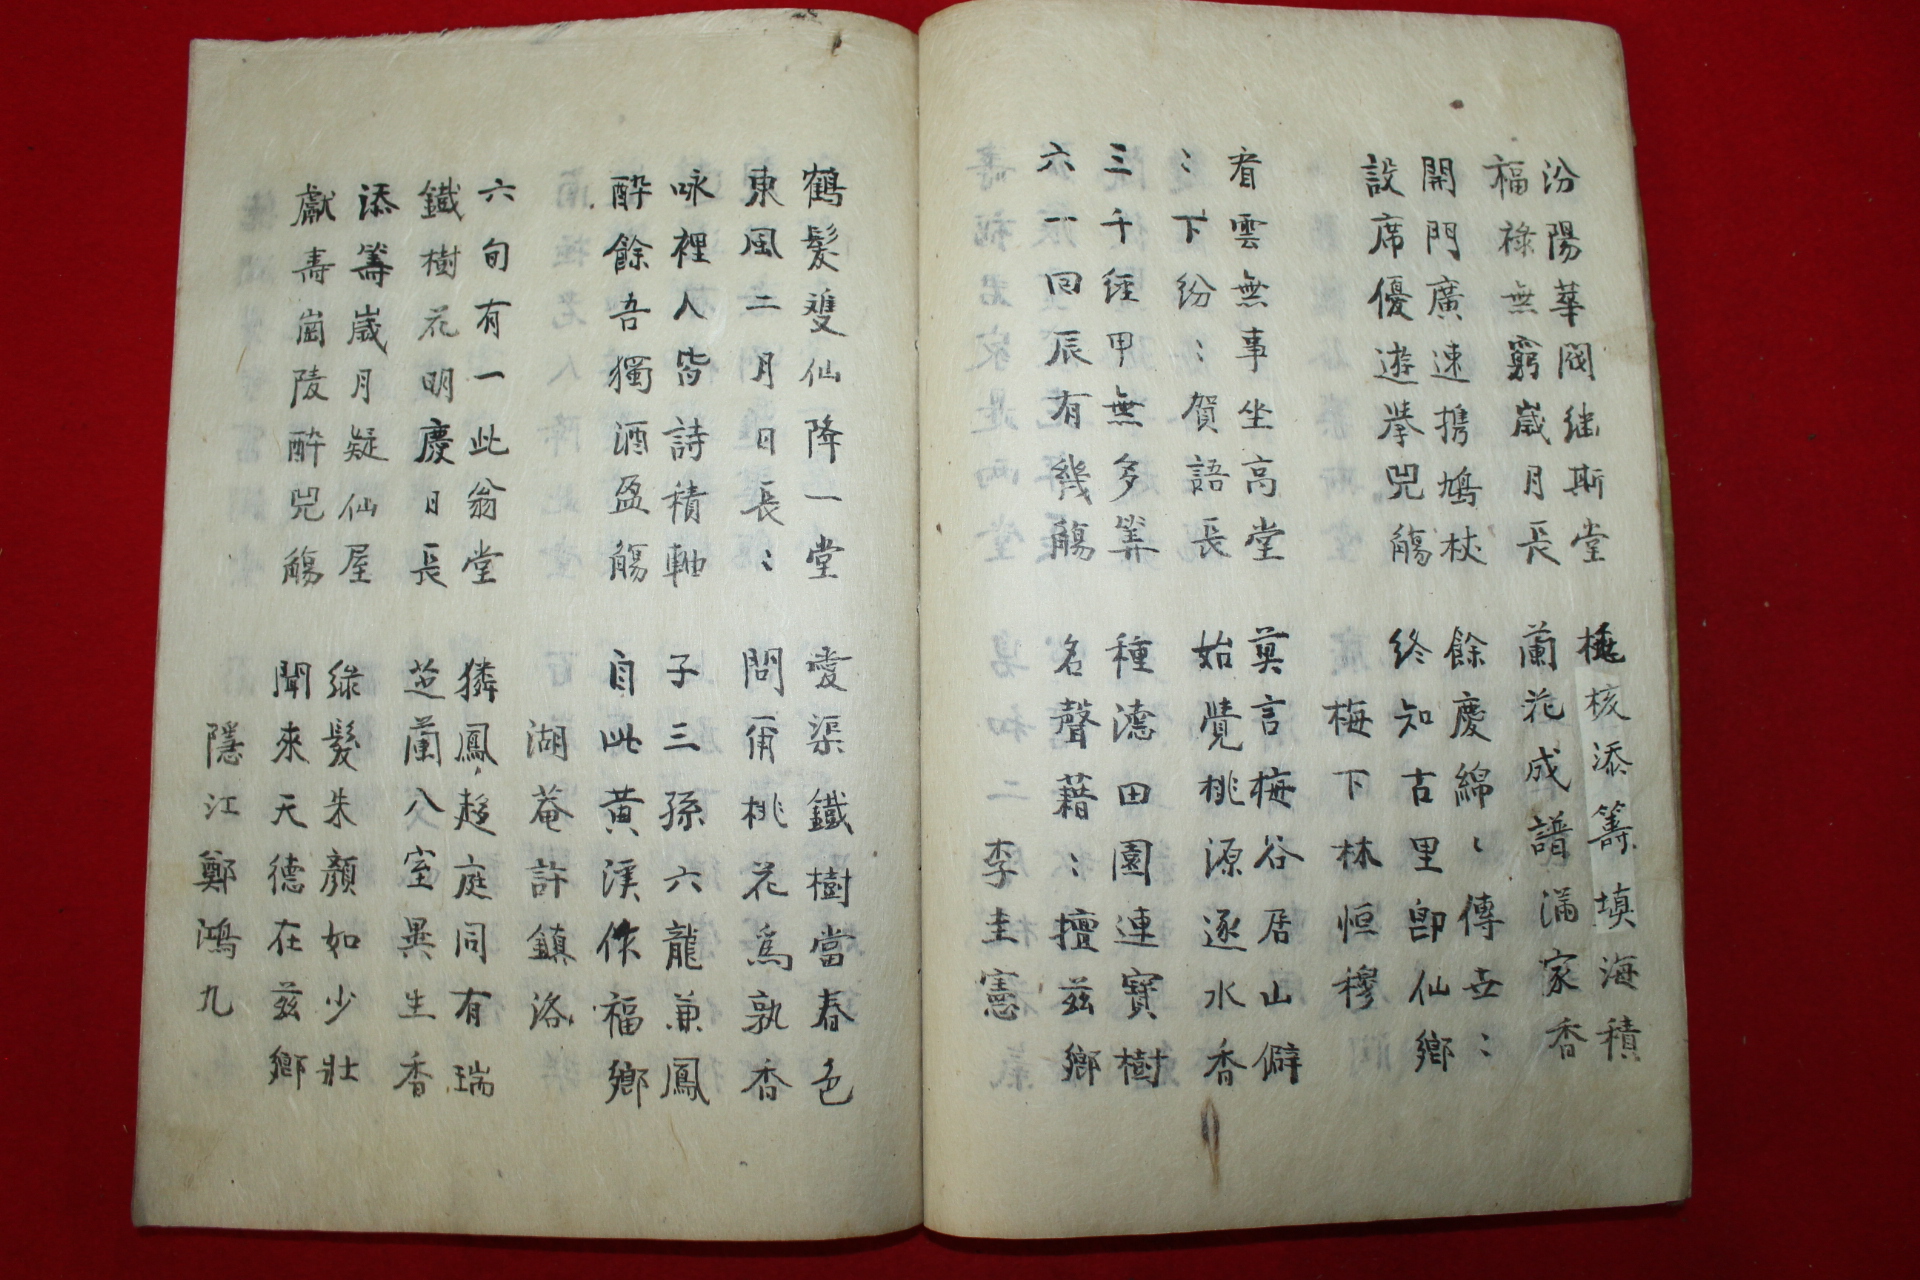 汾陽華閥継斯堂 桃核添籌填海積
福祿無窮歲月長 蘭花成譜滿家香
開門廣速携鳩杖 餘慶綿〻傳世〻
設席優遊擧兕觴 終知古里卽仙鄉
梅下林恒穆
看雲無事坐高堂 莫言梅谷居山僻
〻下紛〻賀語長 始覺桃源逐水香
三千經甲無多筭 種德田園連寶樹
六一回辰有幾觴 名聲藉〻擅茲鄉
李圭憲
鶴髮雙仙降一堂 愛渠鐵樹當春色
東風二月日長〻 問甭桃花爲孰香
咏裡人皆詩積軸 子三孫六龍兼鳳
醉餘吾獨酒盈觴 自此黄溪作福鄉
湖菴許鎮洛
六旬有一此翁堂 獜鳳趍庭同有瑞
鐵樹花明慶日長 芝蘭入室異生香
添籌歲月疑仙屋 綠髮朱顏如少壯
獻壽崗陵醉兕觴 聞來天德在茲鄉
隱江鄭鴻九